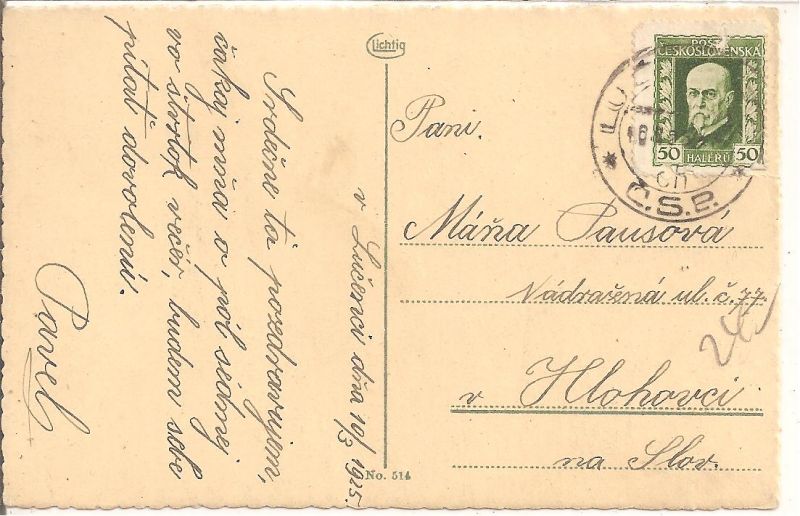 v Lučenci dňa 10/3 1925.
Srdečne ťa pozdravujem,
čakaj mňa o pól siedmej
vo štvrtok večér, budem sebe
pítať dovolenú.
Pavel
Lichtig
No. 514
POŠTA
ČESKOSLOVENSKA
50 HALÉRŮ 50
Č.S.P.
Pani.
Máňa Pausová
Nádražená ul. č. 77.
v Hlohovci
na Slov.